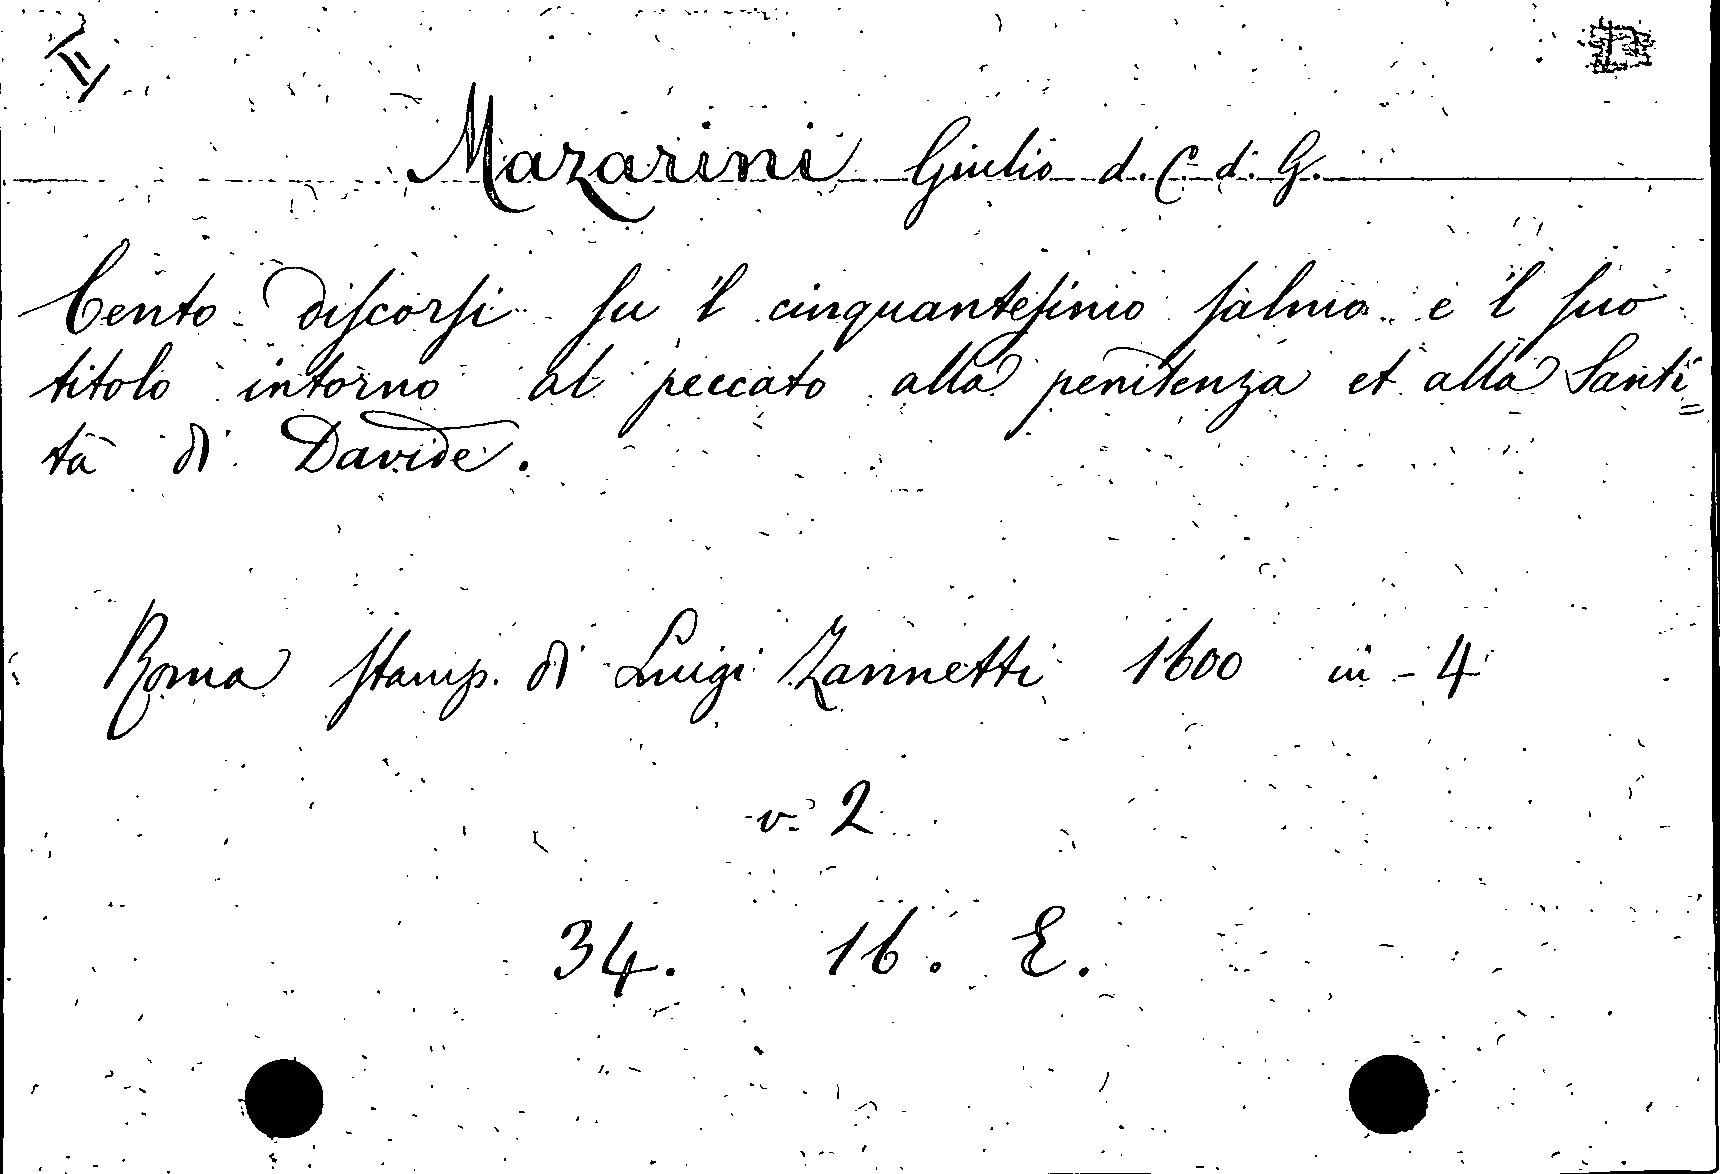 II
Mazarini Giulio d. C. d. G.
Cento discorsi su 'l cinquantesimo salmo e 'l suo
titolo intorno al peccato alla penitenza et alla Santi=
tà di Davide.
Roma stamp. di Luigi Zannetti 1600 in - 4
v. 2
34. 16. E.